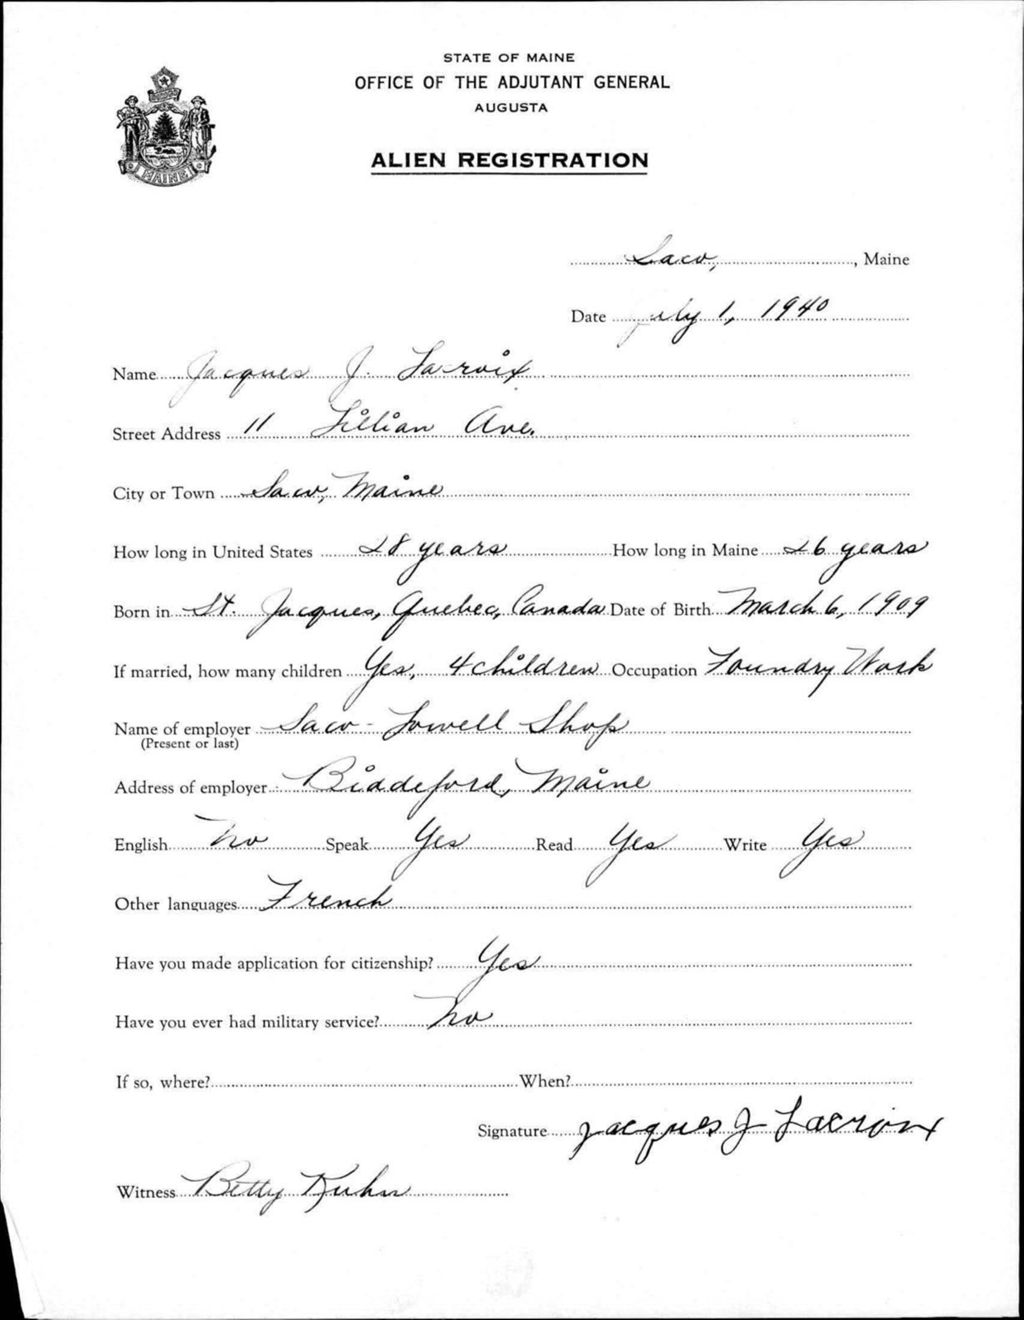 STATE OF MAINE
OFFICE OF THE ADJUTANT GENERAL
AUGUSTA
MAINE
ALIEN REGISTRATION
Saco, , Maine
Date July 1, 1940
Name Jacques J. Lacroix
Street Address 11 Lillian Ave.
City or Town Saco, Maine
How long in United States 28 years How long in Maine 26 years
Born in St. Jacques, Quebec, Canada Date of Birth March 6, 1909
If married, how many children Yes, 4 children Occupation Foundry Work
Name of employer Saco-Lowell Shop
(Present or last)
Address of employer Biddeford, Maine
English No Speak Yes Read Yes Write Yes
Other languages French
Have you made application for citizenship? Yes
Have you ever had military service? No
If so, where? When?
Signature Jacques J Lacroix
Witness Betty Kuhn